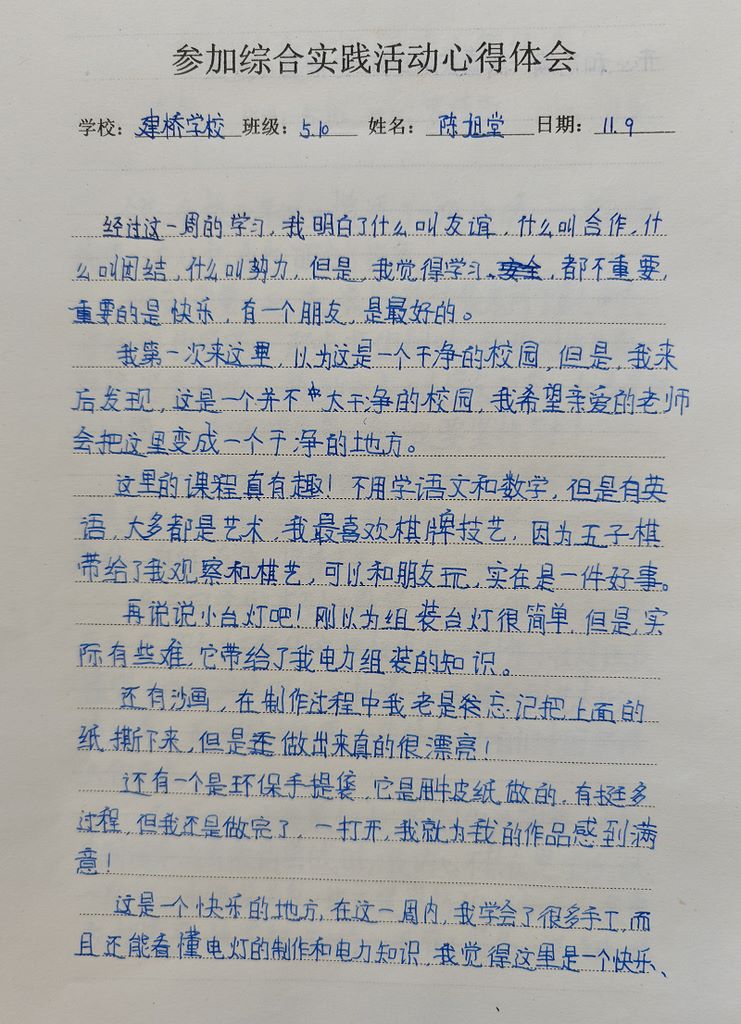 参加综合实践活动心得体会
学校：建桥学校 班级：5.10 姓名：陈旭堂 日期：11.9
经过这一周的学习，我明白了什么叫友谊，什么叫合作，什
么叫团结，什么叫努力，但是，我觉得学习、安全，都不重要，
重要的是快乐，有一个朋友，是最好的。
我第一次来这里，以为这是一个干净的校园，但是，我来
后发现，这是一个并不太干净的校园，我希望亲爱的老师
会把这里变成一个干净的地方。
这里的课程真有趣！不用学语文和数学，但是有英
语，大多都是艺术，我最喜欢棋牌技艺，因为五子棋
带给了我观察和棋艺，可以和朋友玩，实在是一件好事。
再说说小台灯吧！刚以为组装台灯很简单，但是，实
际有些难，它带给了我电力组装的知识。
还有沙画，在制作过程中我老是忘记把上面的
纸撕下来，但是做出来真的很漂亮！
还有一个是环保手提袋，它是用牛皮纸做的，有挺多
过程，但我还是做完了，一打开，我就为我的作品感到满
意！
这是一个快乐的地方，在这一周内，我学会了很多手工，而
且还能看懂电灯的制作和电力知识，我觉得这里是一个快乐、